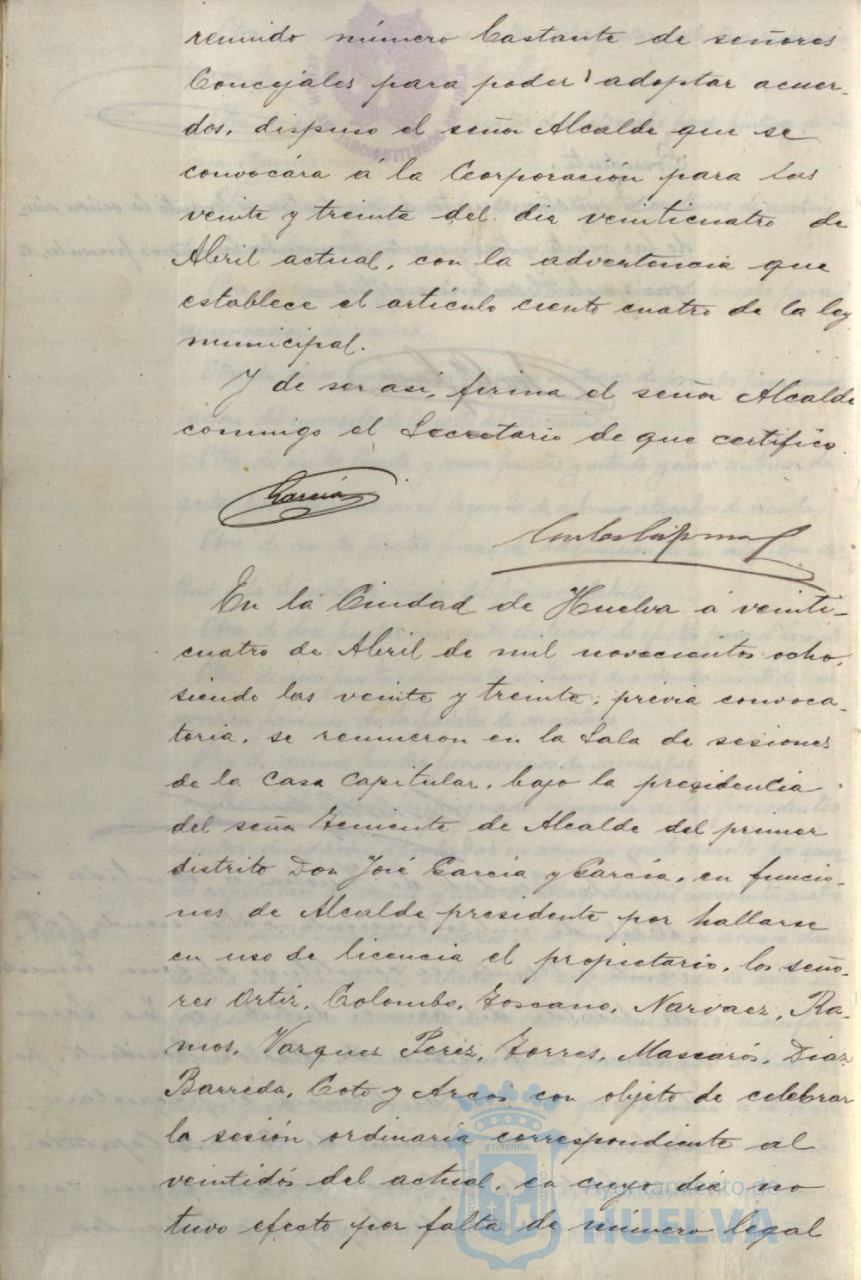 reunido número bastante de señores
Concejales para poder adoptar acuer-
dos, dispuso el señor Alcalde que se
convocára á la Corporación para las
veinte y treinta del dia veinticuatro de
Abril actual, con la advertencia que
establece el artículo ciento cuatro de la ley
municipal.
Y de ser asi, firma el señor Alcalde
conmigo el Secretario de que certifico.
García
En la Ciudad de Huelva á veinti-
cuatro de Abril de mil novecientos ocho,
siendo las veinte y treinta, prévia convoca-
toria, se reunieron en la Sala de sesiones
de la Casa Capitular, bajo la presidencia
del señor Teniente de Alcalde del primer
distrito Don José García y García, en funcio-
nes de Alcalde presidente por hallarse
en uso de licencia el propietario, los seño-
res Ortiz, Colombo, Toscano, Narvaez, Ra-
mos, Vazquez Perez, Torres, Mascarós, Diaz
Barreda, Coto y Arcos con objeto de celebrar
la sesión ordinaria correspondiente al
veintidós del actual, en cuyo dia no
tuvo efecto por falta de número legal
Ayuntamiento de
HUELVA